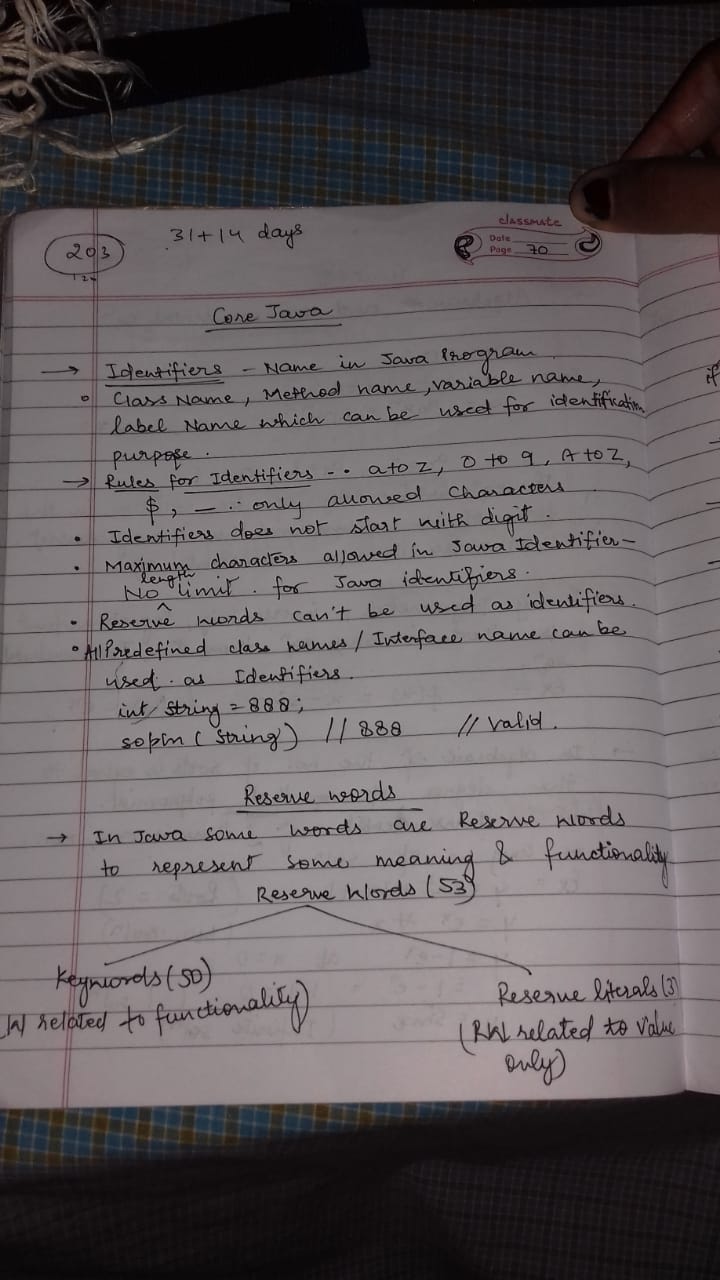 classmate
Date
Page 70
203
12
31+14 days
Core Java
→ Identifiers - Name in Java Program
∘ Class Name, Method name, variable name,
label Name which can be used for identification
purpose.
→ Rules for Identifiers -. a to z, 0 to 9, A to Z,
$, _ ∴ only allowed characters
• Identifiers does not start with digit.
• Maximum characters allowed in Java Identifier -
No length limit. for Java identifiers.
• Reserve words can't be used as identifiers.
• All Predefined class names / Interface name can be
used. as Identifiers.
int String = 888;
sopln (String) // 888 // valid.
Reserve words
→ In Java some words are Reserve Words
to represent some meaning & functionality
Reserve Words (53)
Keywords (50)
W related to functionality)
Reserve literals (3)
(RW related to value
only)
if